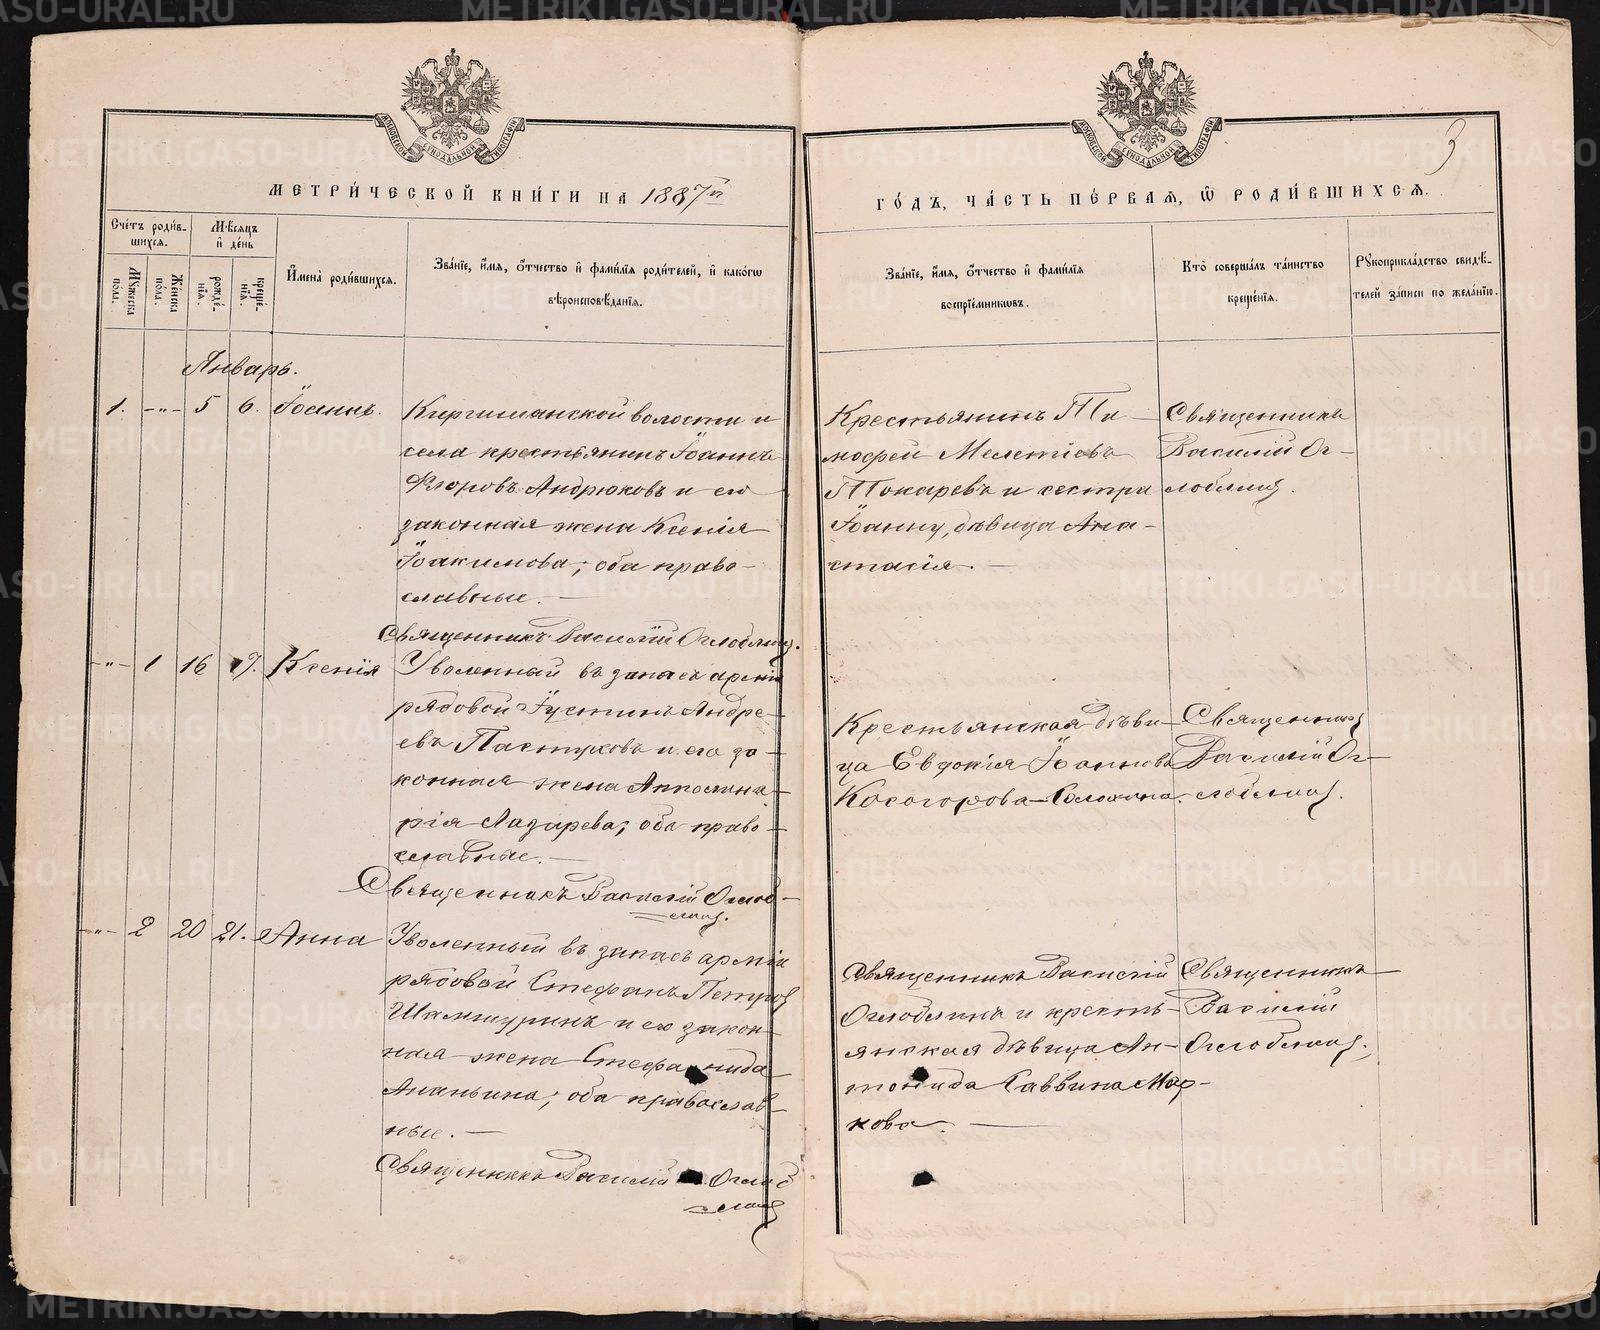 МЕТРИ́ЧЕСКОЙ КНИ́ГИ НА 1887й
ГО́ДЪ, ЧА́СТЬ ПЕ́РВАЯ, Ѡ҆ РОДИ́ВШИХСѦ.
3
Сче́тъ роди́в-
шихся.
Мѣ́сяцъ
и҆ де́нь
Мꙋ́жеска
пола.
Же́нска
пола.
рожде́-
нїѧ.
креще́-
нїѧ.
И҆мена̀ роди́вшихсѧ.
Зва́нїе, и҆́мѧ, ѻ҆́тчество и҆ фами́лїѧ роди́телей, и҆ како́гѡ
вѣроисповѣ́данїѧ.
Зва́нїе, и҆́мѧ, ѻ҆́тчество и҆ фами́лїѧ
воспрїе́мникѡвъ.
Кто̀ соверша́лъ та́инство
креще́нїѧ.
Рꙋкоприкла́дство свидѣ́-
телей за́писи по жела́нїю.
Январь.
1. -"- 5 6. Іоаннъ.
Киргишанской волости и
села крестьянинъ Іоаннъ
Флоровъ Андрюковъ и его
законная жена Ксенія
Іоакимова; оба право-
славные.
Священникъ Василій Оглоблинъ.
Крестьянинъ Ти-
мофей Мелетіевъ
Токаревъ и сестра
Іоанну, дѣвица Ана-
стасія.
Священникъ
Василій Ог-
лоблинъ.
-"- 1 16 17. Ксенія
Уволенный въ запасъ арміи
рядовой Іустинъ Андре-
евъ Пастуховъ и его за-
конная жена Апполина-
рія Лазарева; оба право-
славные.
Священникъ Василій Оглоб-
линъ.
Крестьянская дѣви-
ца Евдокія Іоаннова
Косогорова
Священникъ
Василій Ог-
лоблинъ.
-"- 2 20 21. Анна
Уволенный въ запасъ арміи
рядовой Стефанъ Петровъ
Шамшуринъ и его закон-
ная жена Стефанида
Ананьина; оба православ-
ные.
Священникъ Василій Оглоб
линъ
Священникъ Василій
Оглоблинъ и кресть-
янская дѣвица Ан-
тонида Саввина Мар-
кова.
Священникъ
Василій
Оглоблинъ.
МОСКОВСКОЙ СѴНОДАЛЬНОЙ ТИПОГРАФІИ
МОСКОВСКОЙ СѴНОДАЛЬНОЙ ТИПОГРАФІИ
METRIKI.GASO-URAL.RU